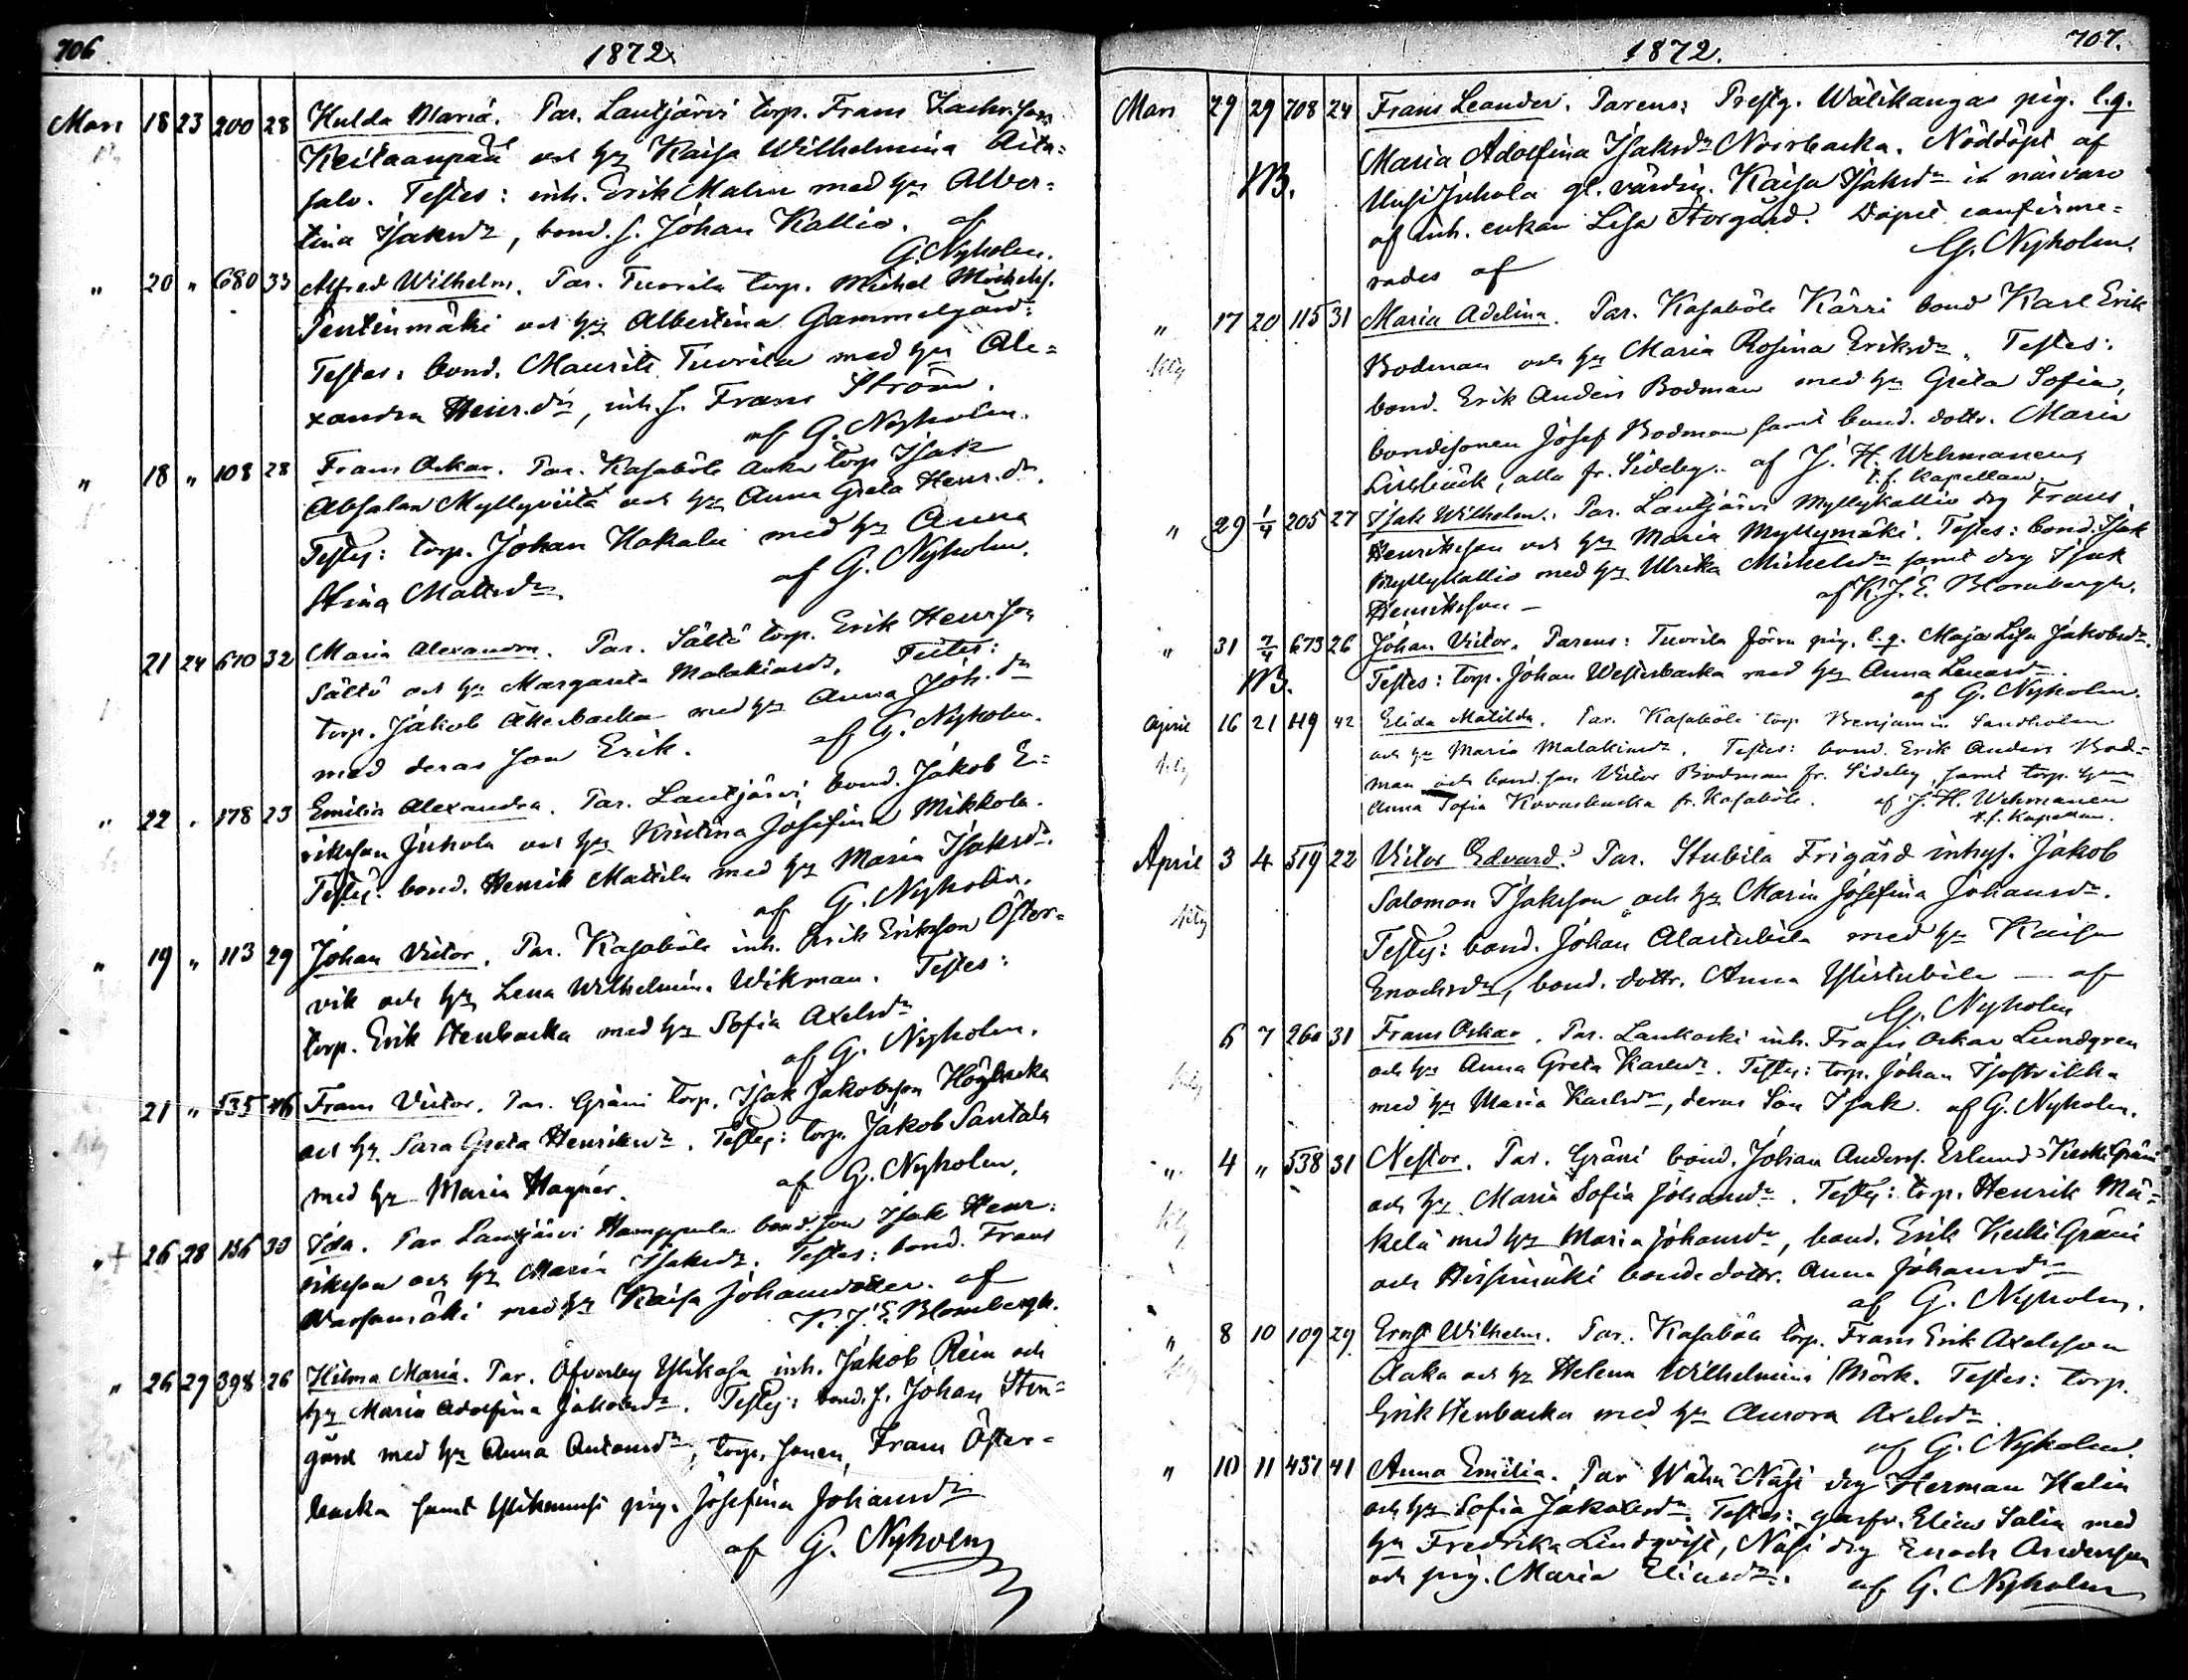 706
1872
Mars 18 23 200 28 Hulda Maria. Par. Lautjärvi torp. Frans Zachrisson
Keitaanpää och hu Kaisa Wilhelmina Aita-
salo. Testes: inh. Erik Malm med hu Alber-
tina Isaksdr, bond. s. Johan Kallio. af
G. Nyholm.
" 20 " 680 33 Alfred Wilhelm. Par. Tuorila torp. Michel Michelss.
Penttinmäki och hu Albertina Gammelgård.
Testes: bond. Maurits Tuorila med hu Ale-
xandra Henr.dr, inh. s. Frans Ström.
af G. Nyholm.
" 18 " 108 28 Frans Oskar. Par. Kasaböle torp Isak
Absalon Myllyviita och hu Anna Greta Henr.dr.
Testes: torp. Johan Hakala med hu Anna
Stina Mattsdr af G. Nyholm.
21 24 610 32 Maria Alexandra. Par. Sältö torp. Erik Henrsson
Sältö och hu Margareta Malakiasdr. Testes:
torp. Jakob Åkerbacka med hu Anna Joh.dr
med deras son Erik. af G. Nyholm.
" 22 " 178 23 Emilia Alexandra. Par. Lautjärvi bond. Jakob E-
riksson Juhola och hu Kristina Josefina Mikkola.
Testes: bond. Henrik Mattila med hu Maria Isaksdr.
af G. Nyholm.
" 19 " 113 29 Johan Victor. Par. Kasaböle inh. Erik Eriksson Öster-
vik och hu Lena Wilhelmina Wikman. Testes:
torp. Erik Stenbacka med hu Sofia Axelsdr
af G. Nyholm.
21 " 535 46 Frans Victor. Par. Gräni torp. Isak Jakobsson Högbacka
och hu Sara Greta Henriksdr. Testes: torp. Jakob Santala
med hu Maria Hagnér. af G. Nyholm.
" + 26 28 186 30 Ida. Par Lautjärvi Hamppula bond. son Isak Hen-
riksson och hu Maria Isaksdr. Testes: bond. Frans
Warsamäki med hu Kaisa Johansdotter. af
K. J. E. Blombergh.
" 26 29 398 26 Hilma Maria. Par. Öfverby Ylikasa inh. Jakob Rein och
hu Maria Adolfina Jakobsdr. Testes: bond. s. Johan Sten-
gård med hu Anna Antonsdr, torp. sonen Frans Öster-
backa samt pig. Josefina Johansdr
af G. Nyholm
1872.
707.
Mars 29 29 708 24 Frans Leander. Parens: Prestg. Wälikangas pig. l.g.
NB. Maria Adolfina Isaksdr Norrbacka. Nöddöpt af
Uusi Juhola gl. värdin. Kaisa Isaksdr i närvaro
af inh. enkan Lisa Storgård. Dopet confirme-
rades af G. Nyholm.
" 17 20 115 31 Maria Adelina. Par. Kasaböle Kärri bond Karl Erik
Bodman och hu Maria Rosina Eriksdr. Testes:
bond. Erik Anders Bodman med hu Greta Sofia,
bondesonen Josef Bodman samt bond. dottr. Maria
Lillbäck, alla fr. Sideby. af J. H. Wehmanen
t.f. Kapellan.
" 29 1/4 205 27 Isak Wilhelm. Par. Lautjärvi Myllykallio drg Frans
Henriksson och hu Maria Myllymäki. Testes: bond. Isak
Myllykallio med hu Ulrika Michelsdr samt drg Isak
Henriksson - af K. J. E. Blombergh.
" 31 7/4 673 26 Johan Victor. Parens: Tuorila Jörra pig. l.g. Maja Lisa Jakobsdr.
NB. Testes: torp. Johan Westerbacka med hu Anna Lenasdr.
af G. Nyholm.
April 16 21 119 42 Elida Matilda. Par. Kasaböle torp Benjamin Sandholm
och hu Maria Malakiasdr. Testes: bond. Erik Anders Bod-
man och bond. son Victor Bodman fr. Sideby, samt torp. hun
Anna Sofia Kovasbacka fr. Kasaböle. af J. H. Wehmanen
t.f. Kapellan.
April 3 4 519 22 Victor Edvard. Par. Stubila Frigård inhys. Jakob
Salomon Isaksson och hu Maria Josefina Johansdr.
Testes: bond. Johan Alastubila med hu Kaisa
Enochsdr, bond. dottr. Anna Ylistubila - af
G. Nyholm
6 7 260 31 Frans Oskar. Par. Lankoski inh. Frans Oskar Lundgren
och hu Anna Greta Karlsdr. Testes: torp. Johan
med hu Maria Karlsdr, deras son Isak. af G. Nyholm.
" 4 " 538 31 Nestor. Par. Gräni bond. Johan Anderss. Erlund Keski Gräni
och hu Maria Sofia Johansdr. Testes: torp. Henrik Mä-
kelä med hu Maria Johansdr, bond. Erik Keski Gräni
och Hirsimäki bondedottr. Anna Johansdr
af G. Nyholm.
" 8 10 109 29 Ernst Wilhelm. Par. Kasaböle torp. Frans Erik Axelsson
och hu Helena Wilhelmina Mörk. Testes: torp.
Erik Stenbacka med hu Aurora Axelsdr
af G. Nyholm.
" 10 11 437 41 Anna Emilia. Par Wähä Näsi drg Herman Helin
och hu Sofia Jakobsdr. Testes: garfv. Elias Salin med
hu Fredrika Lindqvist, Näsi drg Enoch Andersson
och pig. Maria Eliasdr. af G. Nyholm